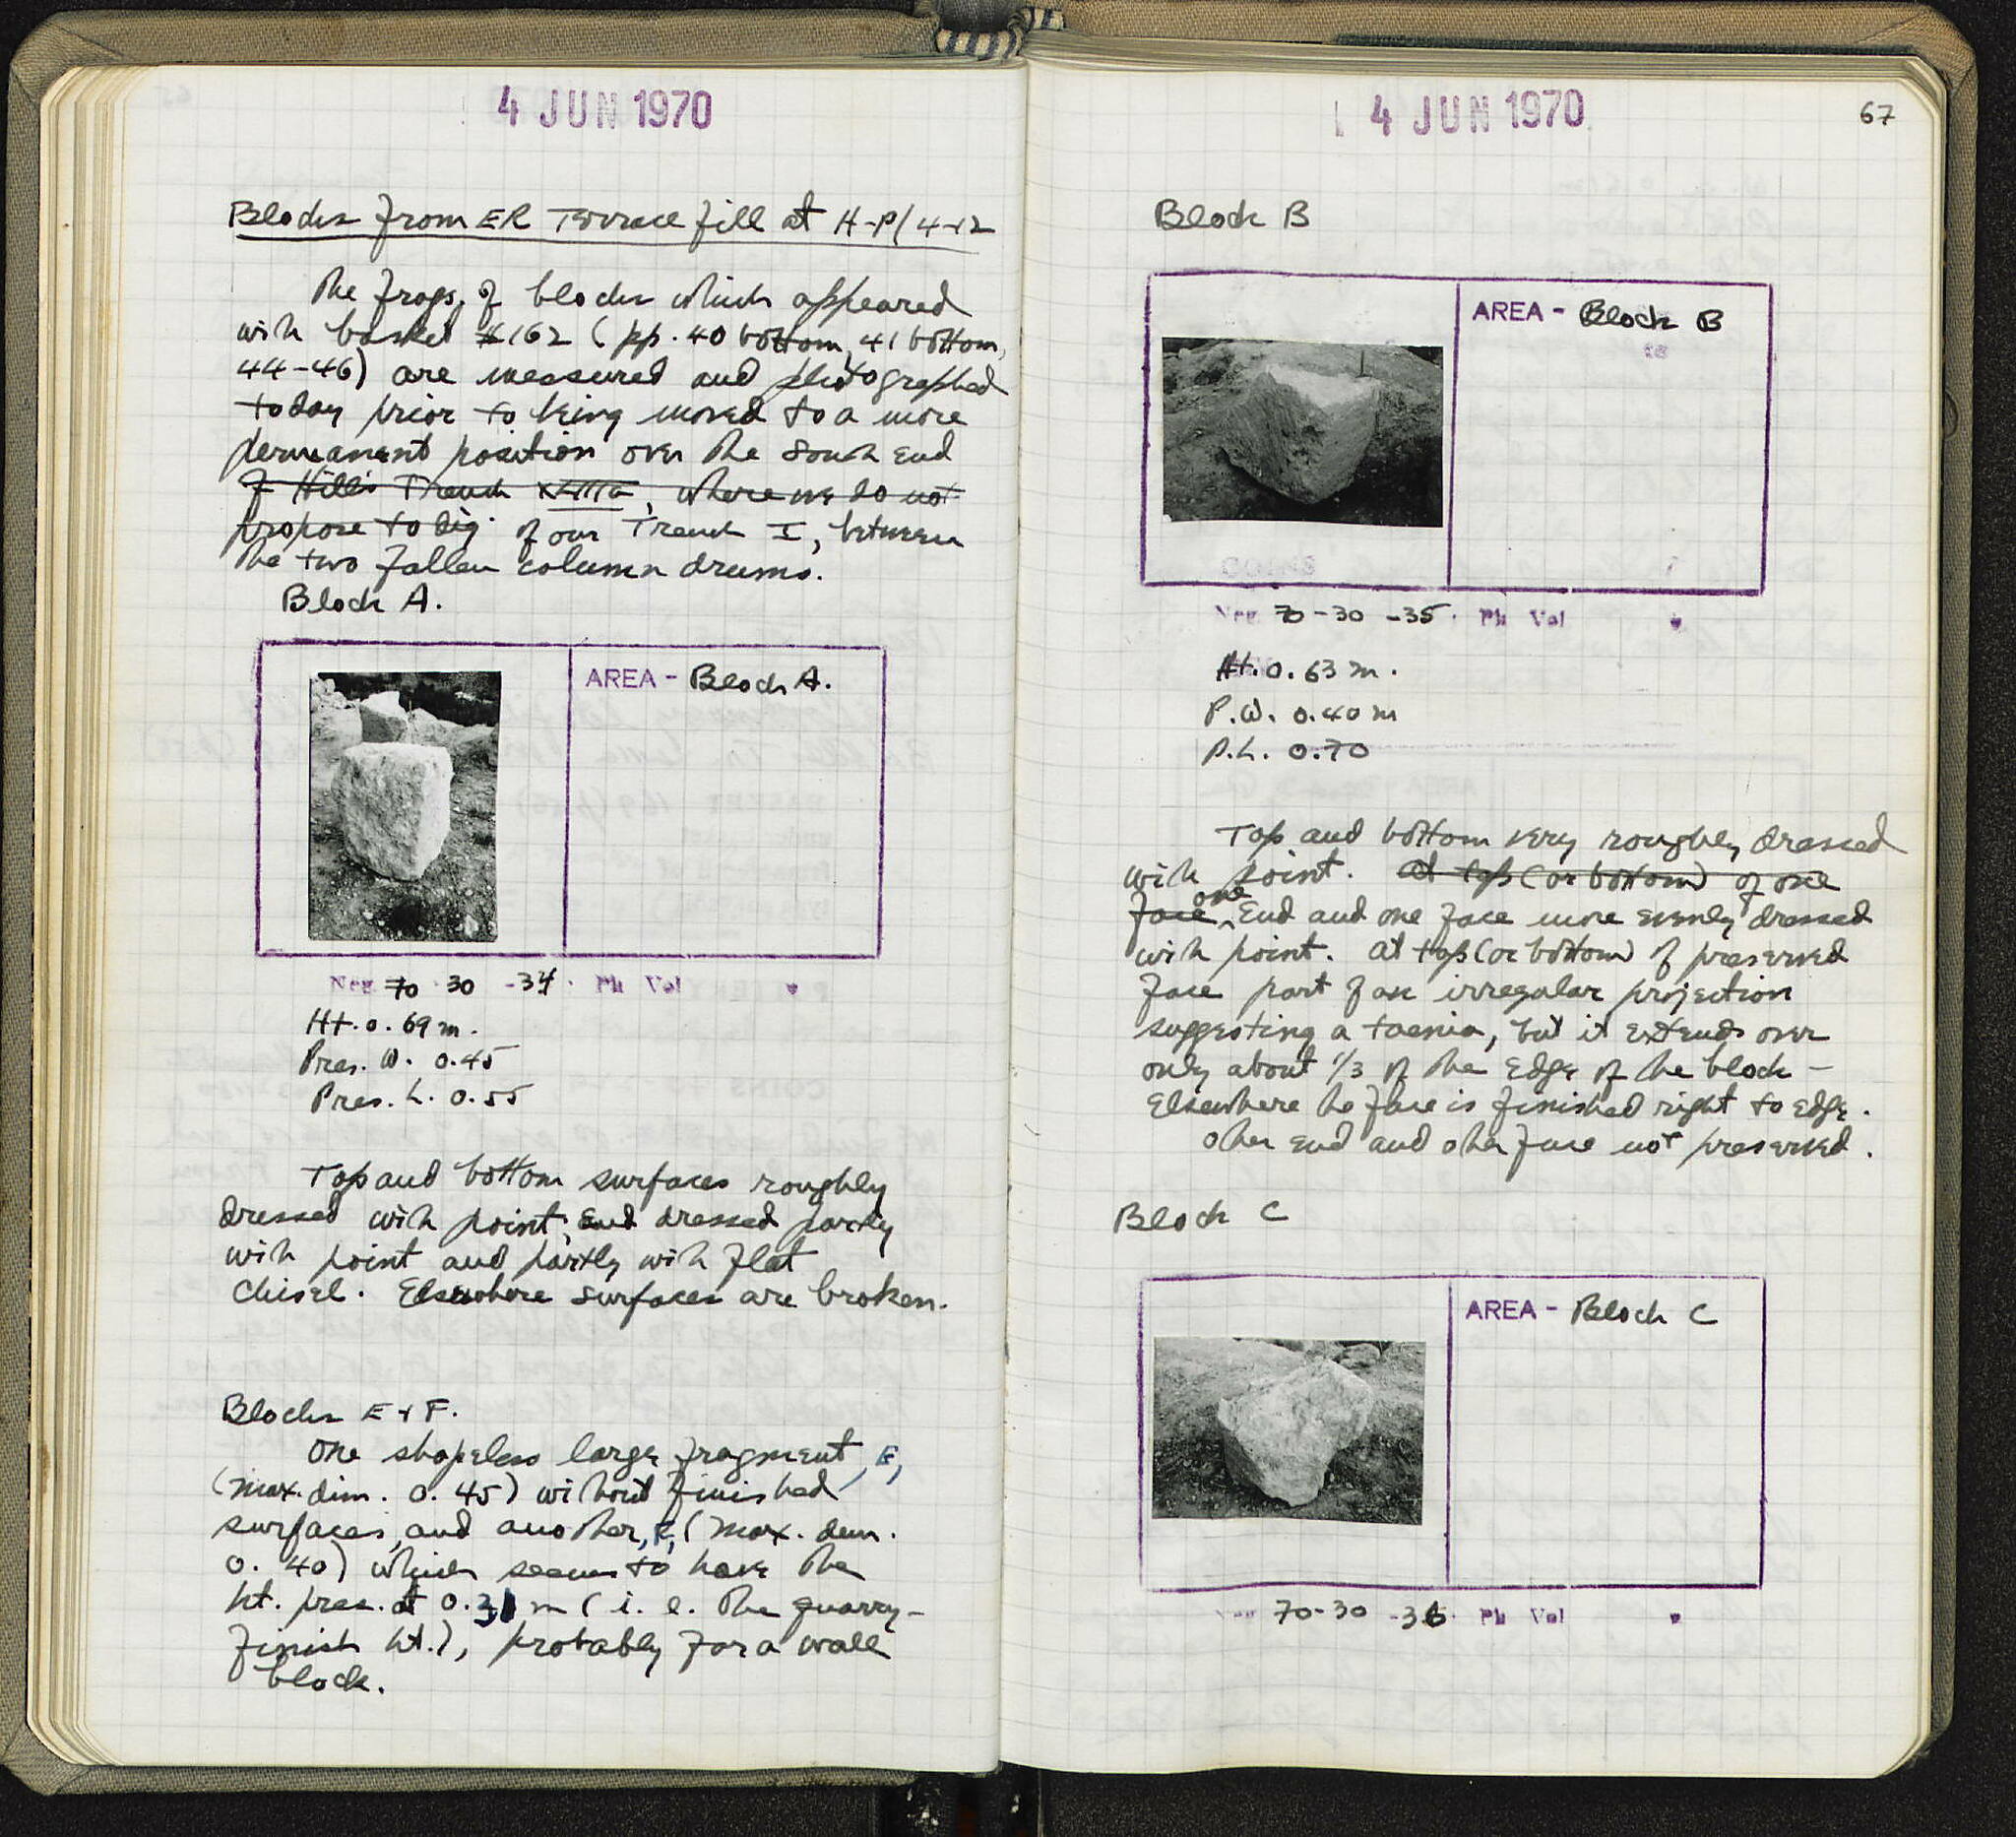 4 JUN 1970
Blocks from ER Terrace fill at H-P/4-12
The frags. of blocks which appeared
with basket #162 (pp. 40 bottom, 41 bottom,
44-46) are measured and photographed
today prior to being moved to a more
permanent position over the south end
of Hill's Trench, where we do not
propose to dig. of our Trench I, between
the two fallen column drums.
Block A.
AREA - Block A.
Neg. 70-30-34. Ph Vol
Ht. 0.69 m.
Pres. W. 0.45
Pres. L. 0.55
Top and bottom surfaces roughly
dressed with point; End dressed partly
with point and partly with flat
chisel. Elsewhere surfaces are broken.
Blocks E + F.
One shapeless large fragment, E,
(max. dim. 0.45) without finished
surfaces, and another, F, (max. dim.
0.40) which seems to have the
ht. pres. at 0.31 m (i.e. the quarry-
finish ht.), probably for a wall
block.
4 JUN 1970
67
Block B
AREA - Block B
COINS
Neg. 70-30-35. Ph Vol
Ht. 0.63 m.
P.W. 0.40 m
P.L. 0.70
Top and bottom very roughly dressed
with point. At top (or bottom) of one
face, one End and one face more evenly dressed
with point. At top (or bottom) of preserved
face part of an irregular projection
suggesting a taenia, but it extends over
only about 1/3 of the edge of the block -
Elsewhere the face is finished right to edge.
Other end and other face not preserved.
Block C
AREA - Block C
70-30-36. Ph Vol